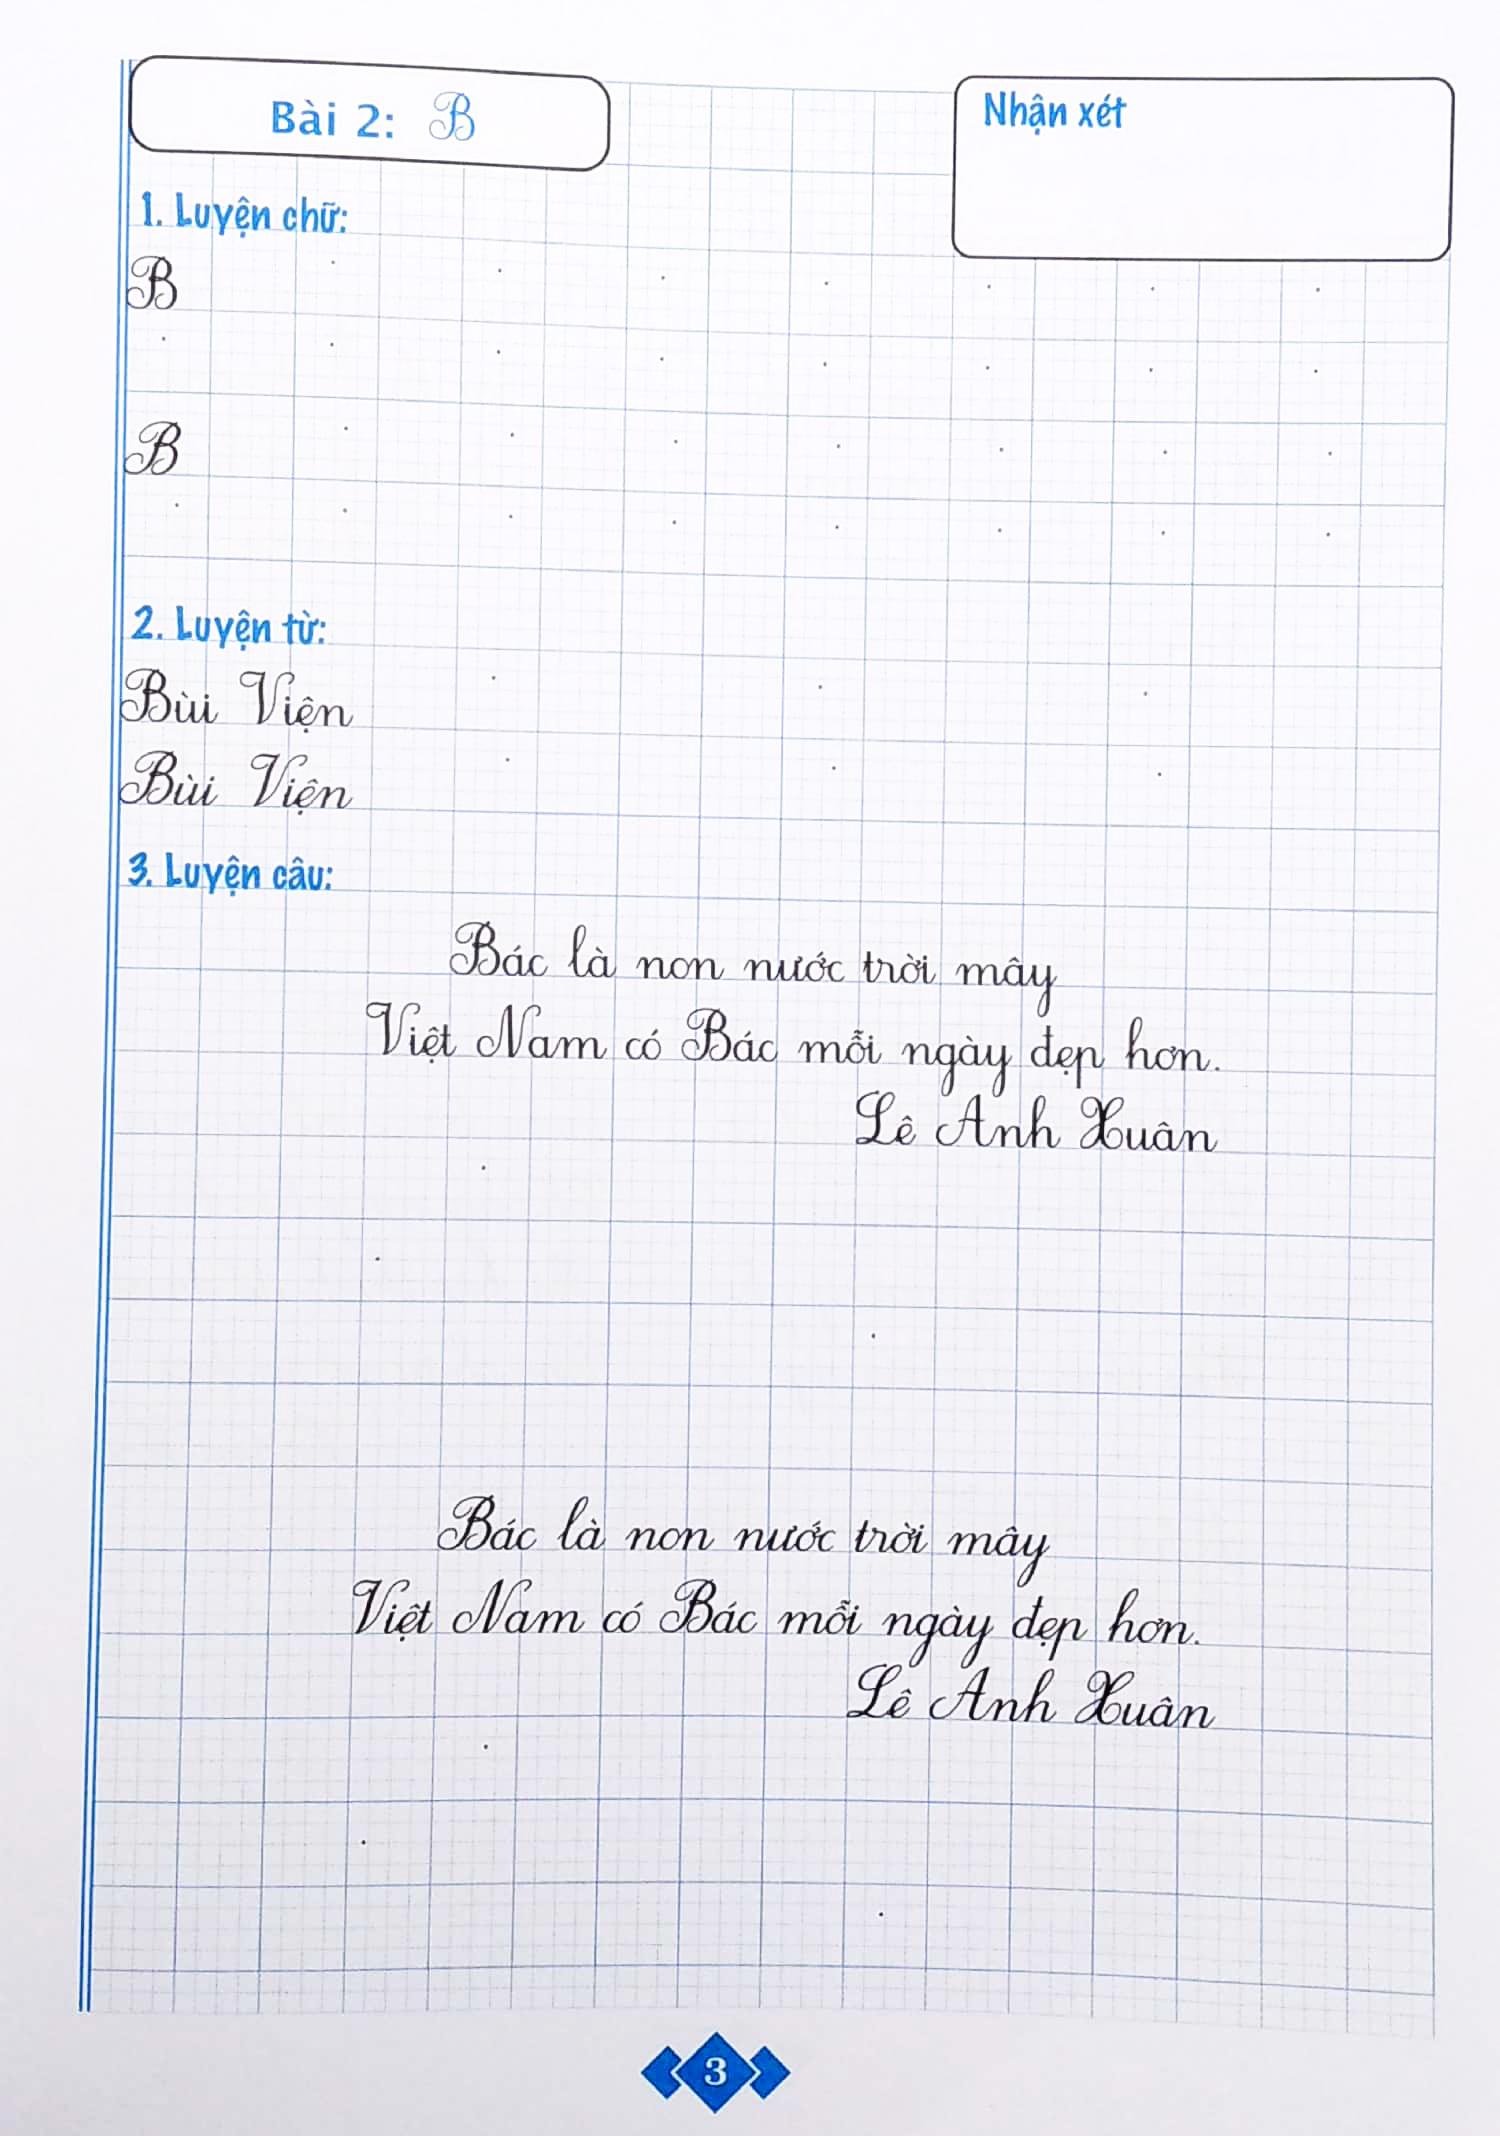 Bài 2: B
Nhận xét
1. Luyện chữ:
B
B
2. Luyện từ:
Bùi Viện
Bùi Viện
3. Luyện câu:
Bác là non nước trời mây
Việt Nam có Bác mỗi ngày đẹp hơn.
Lê Anh Xuân
Bác là non nước trời mây
Việt Nam có Bác mỗi ngày đẹp hơn.
Lê Anh Xuân
3